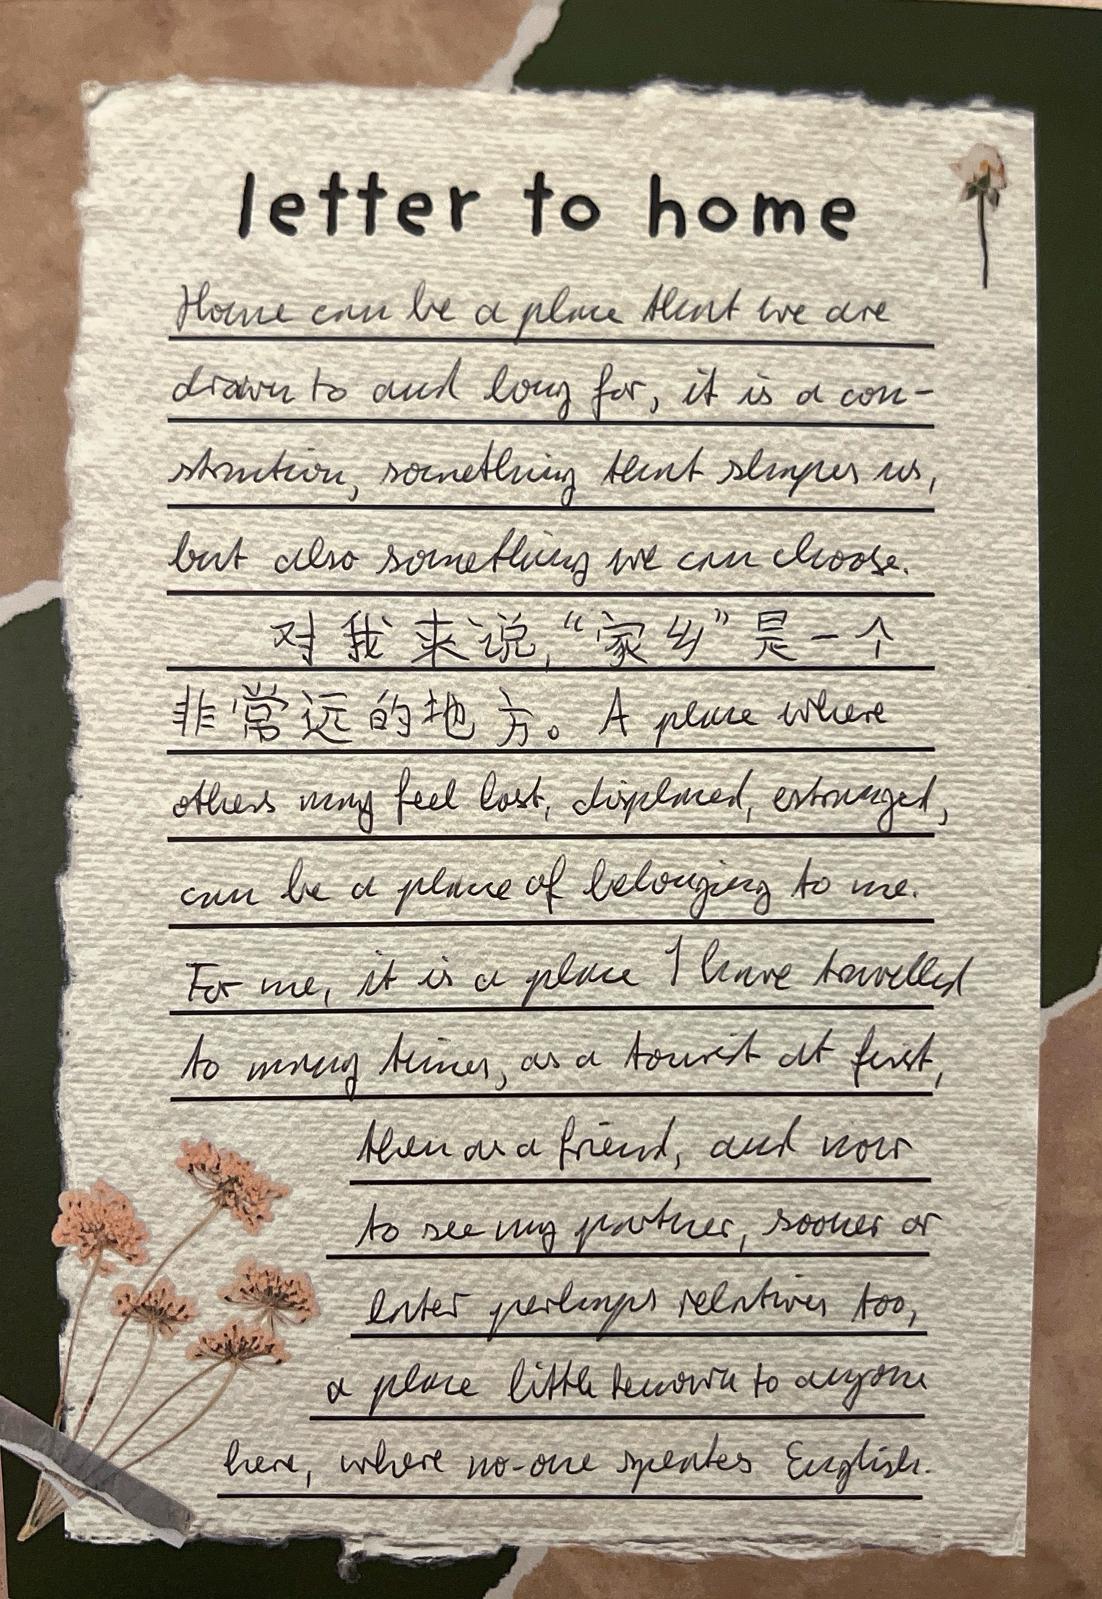 letter to home
Home can be a place that we are
drawn to and long for, it is a con-
struction, something that shapes us,
but also something we can choose.
对我来说,“家乡”是一个
非常远的地方。 A place where
others may feel lost, displaced, estranged,
can be a place of belonging to me.
For me, it is a place I have travelled
to many times, as a tourist at first,
then as a friend, and now
to see my partner, sooner or
later perhaps relatives too,
a place little known to anyone
here, where no-one speaks English.